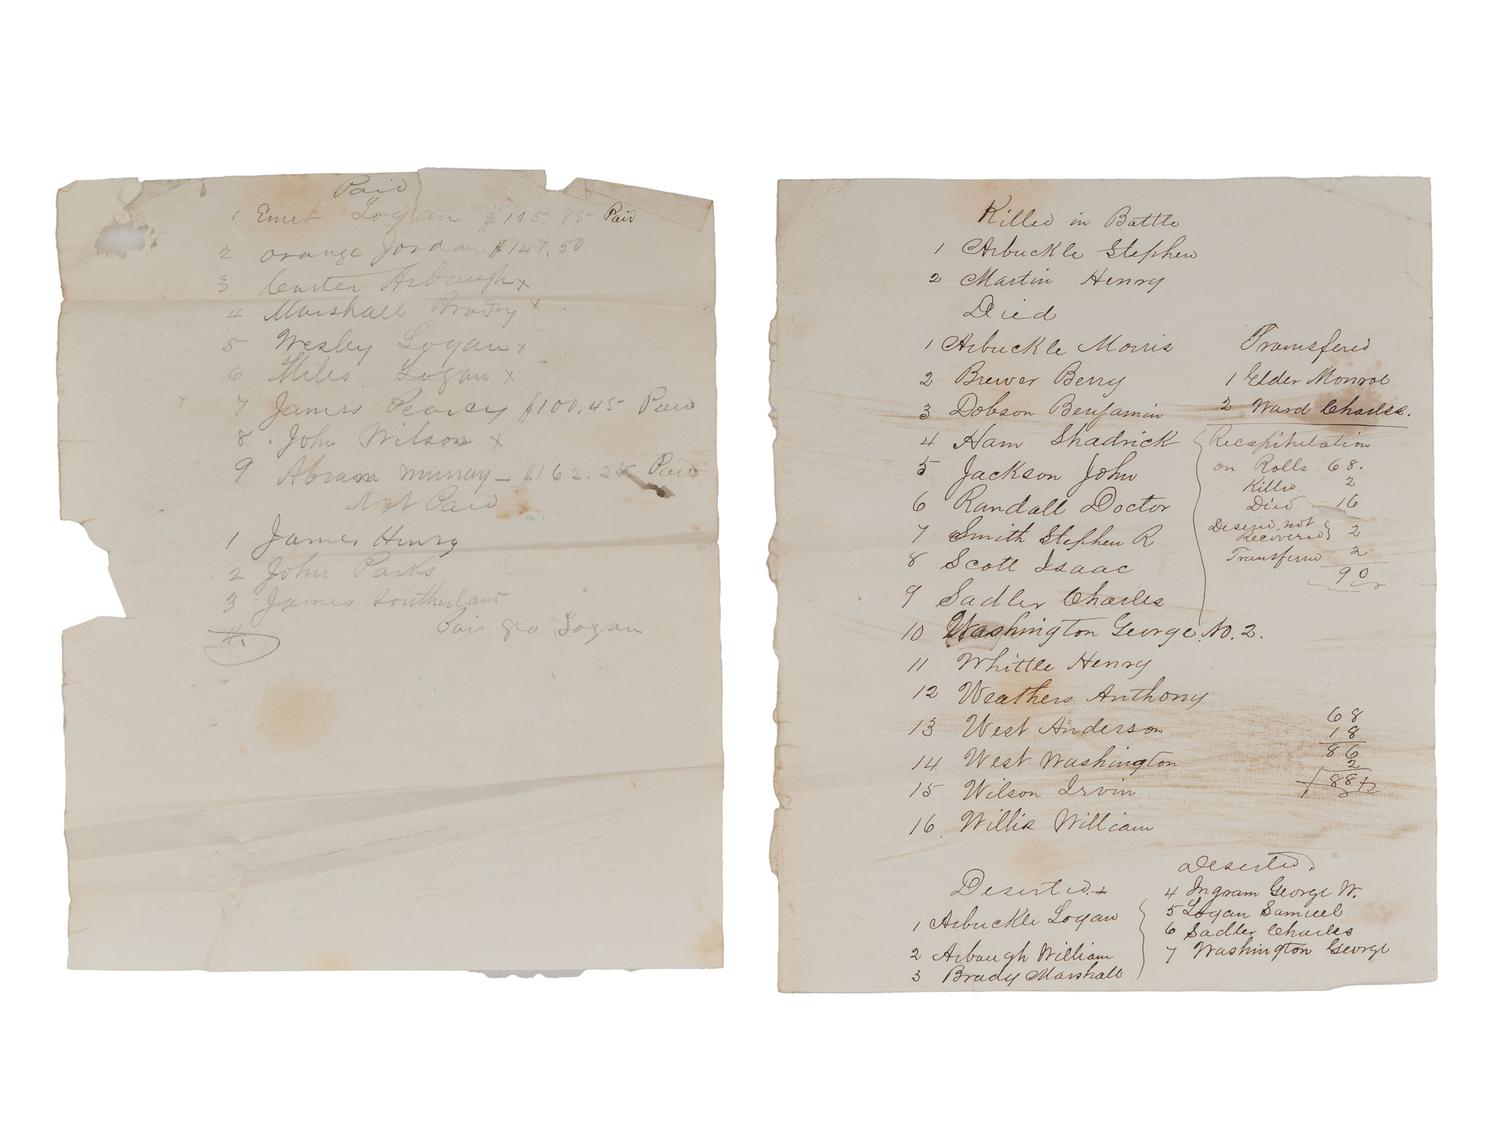 Paid
1 Emet Logan $105.85 Paid
2 orange Jordan $147.50
3 Carter Arbaugh x
4 Marshall Brady x
5 Wesley Logan x
6 Miles Logan x
7 James Pearcy $100.45 Paid
8. John Wilson x
9 Abram murray — $162.25 Paid
Not Paid
1 James Henry
2 John Parks
3 James Southerland
Geo Logan
Killed in Battle
1 Arbuckle Stephen
2 Martin Henry
Died
1 Arbuckle Morris
2 Brewer Berry
3 Dobson Benjamin
4 Ham Shadrick
5 Jackson John
6 Randall Doctor
7 Smith Stephen R
8 Scott Isaac
9 Sadler Charles
10 Washington George No. 2.
11 Whittle Henry
12 Weathers Anthony
13 West Anderson
14 West Washington
15 Wilson Irvin
16. Willis William
Transfered
1 Elder Monroe
2 Ward Charles.
Recapitulation
on Rolls 68.
Killed 2
Died 16
Deserted, not
Recovered} 2
Transfered 2
90
68
18
86
2
88
Deserted
1 Arbuckle Logan
2 Arbaugh William
3 Brady Marshall
Deserted
4 Ingram George W.
5 Logan Samuel
6 Sadler Charles
7 Washington George